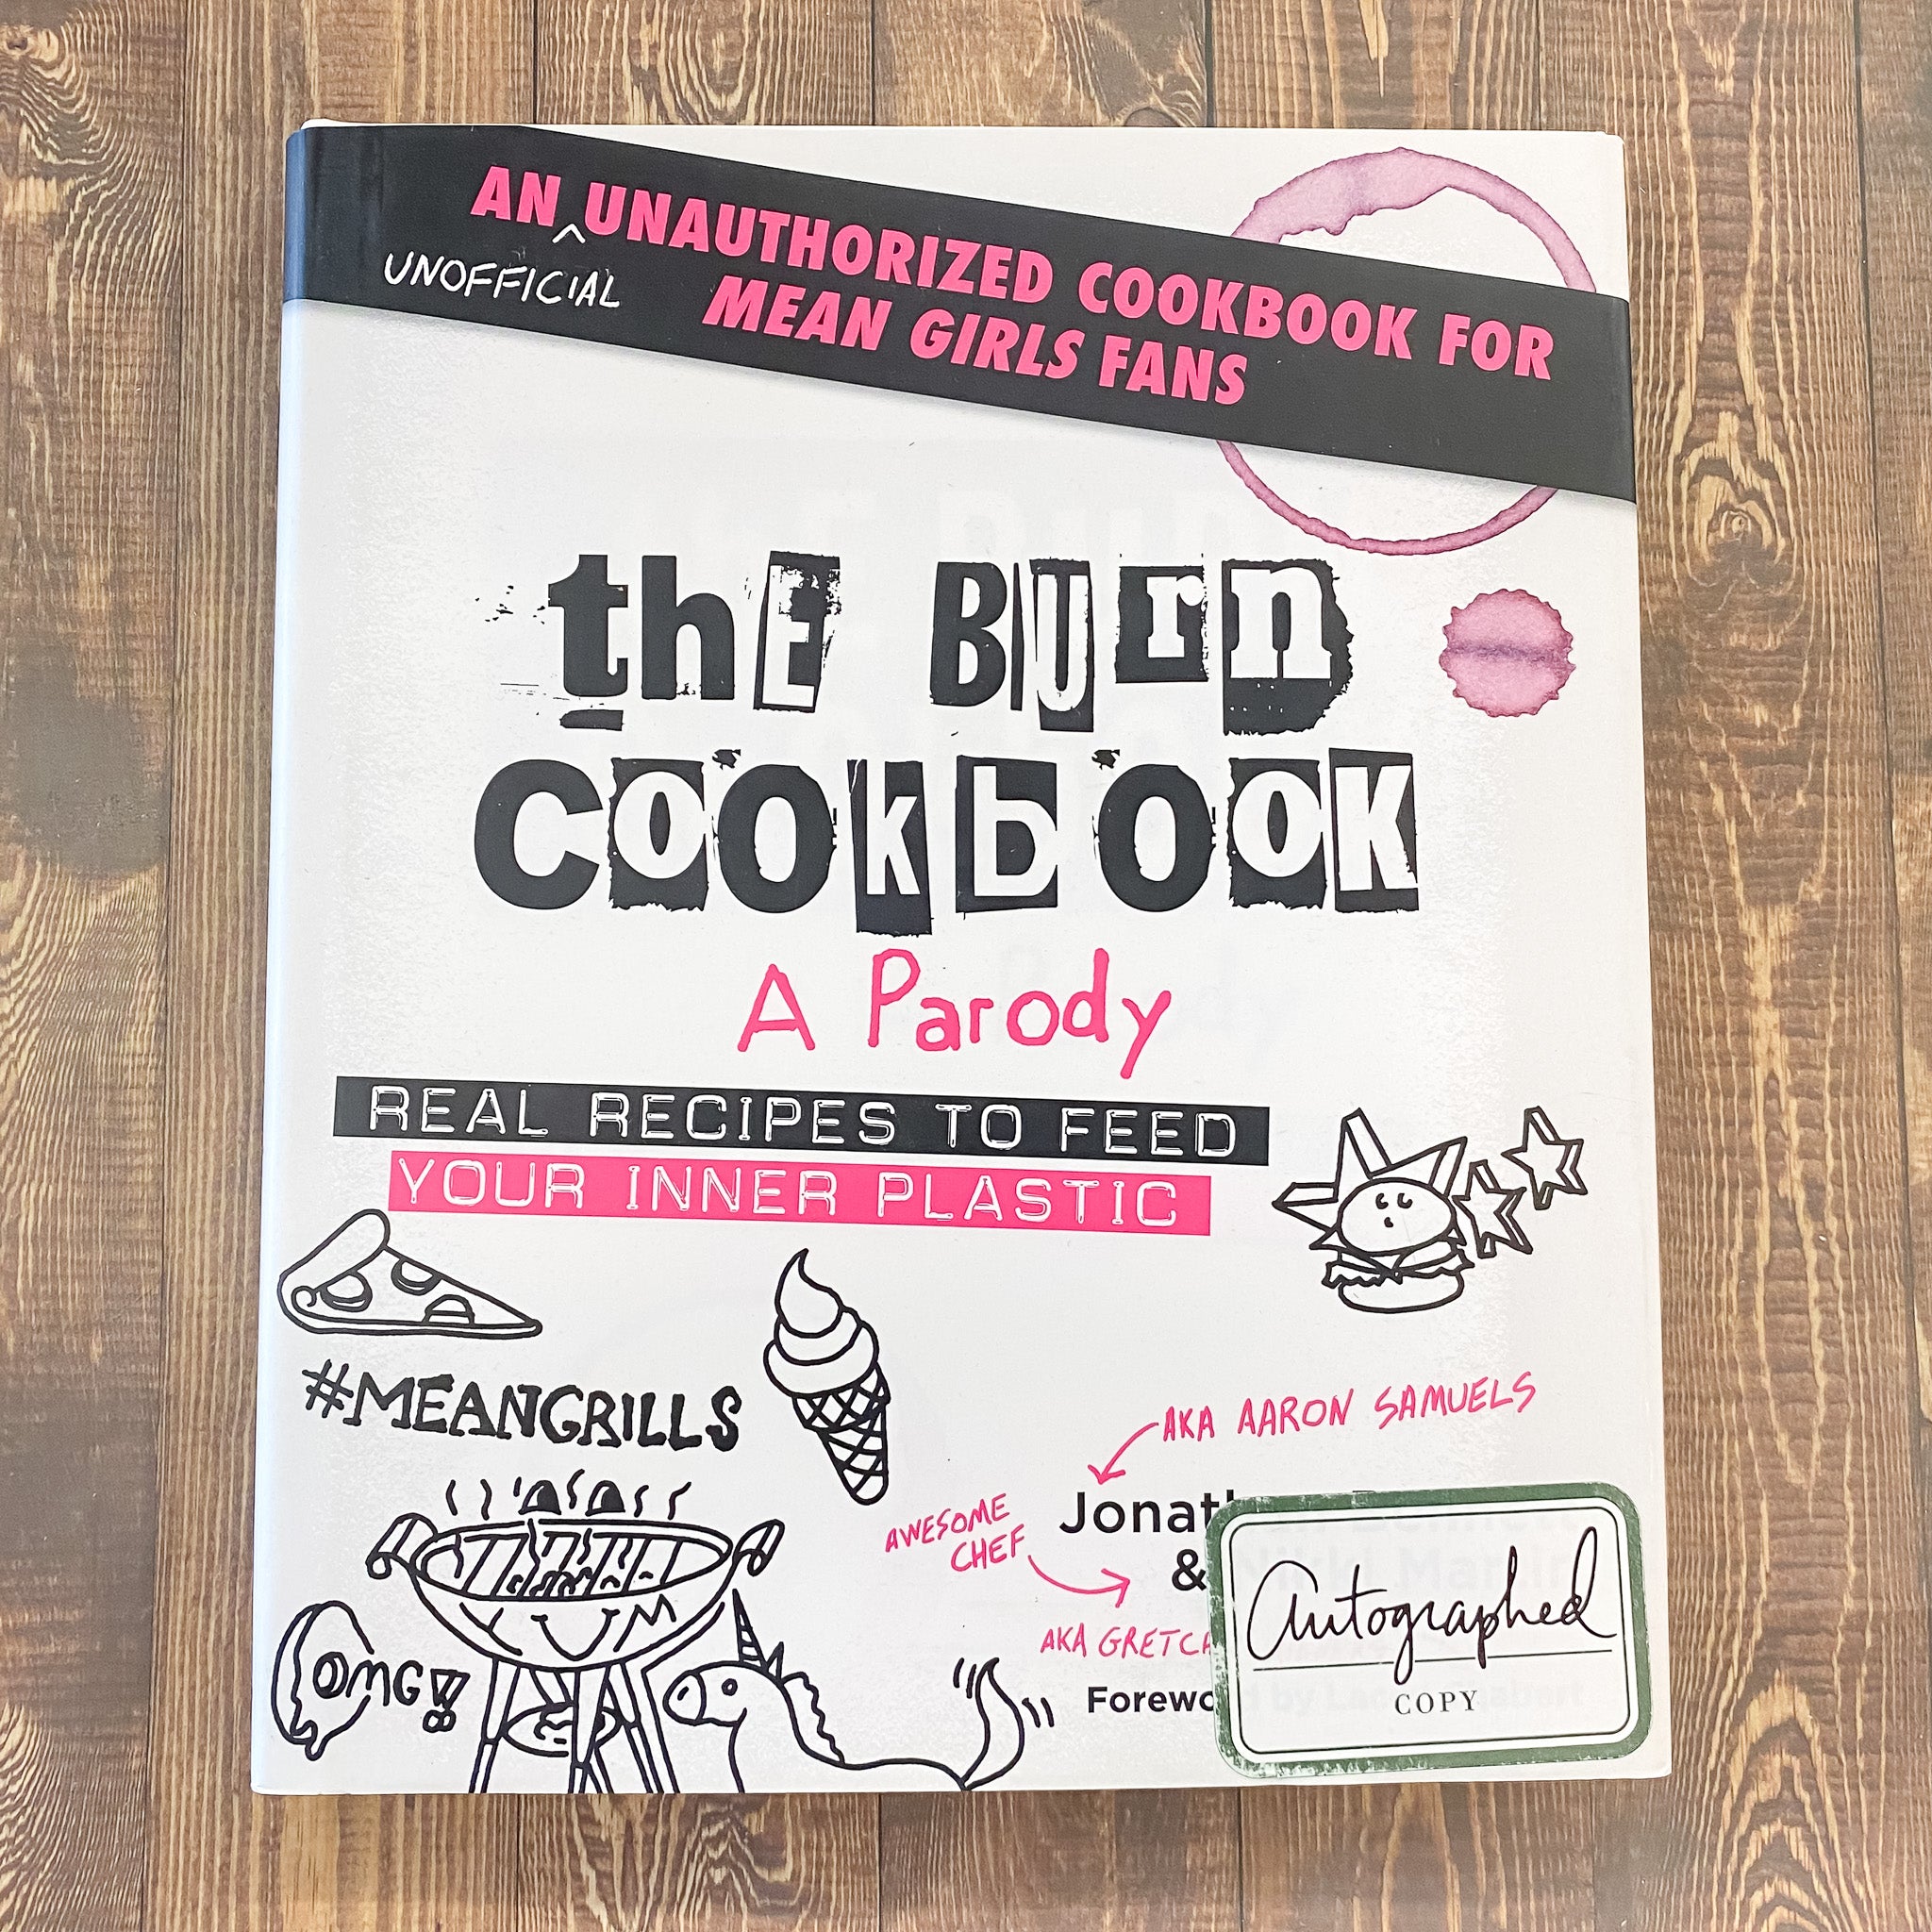 AN UNAUTHORIZED COOKBOOK FOR
UNOFFICIAL
MEAN GIRLS FANS
thE BUrn
COOkbOOK
A Parody
REAL RECIPES TO FEED
YOUR INNER PLASTIC
#MEANGRILLS
AKA AARON SAMUELS
Jonat
AWESOME
CHEF
&
AKA GRETC
Forewo
OMG!!
Autographed
COPY